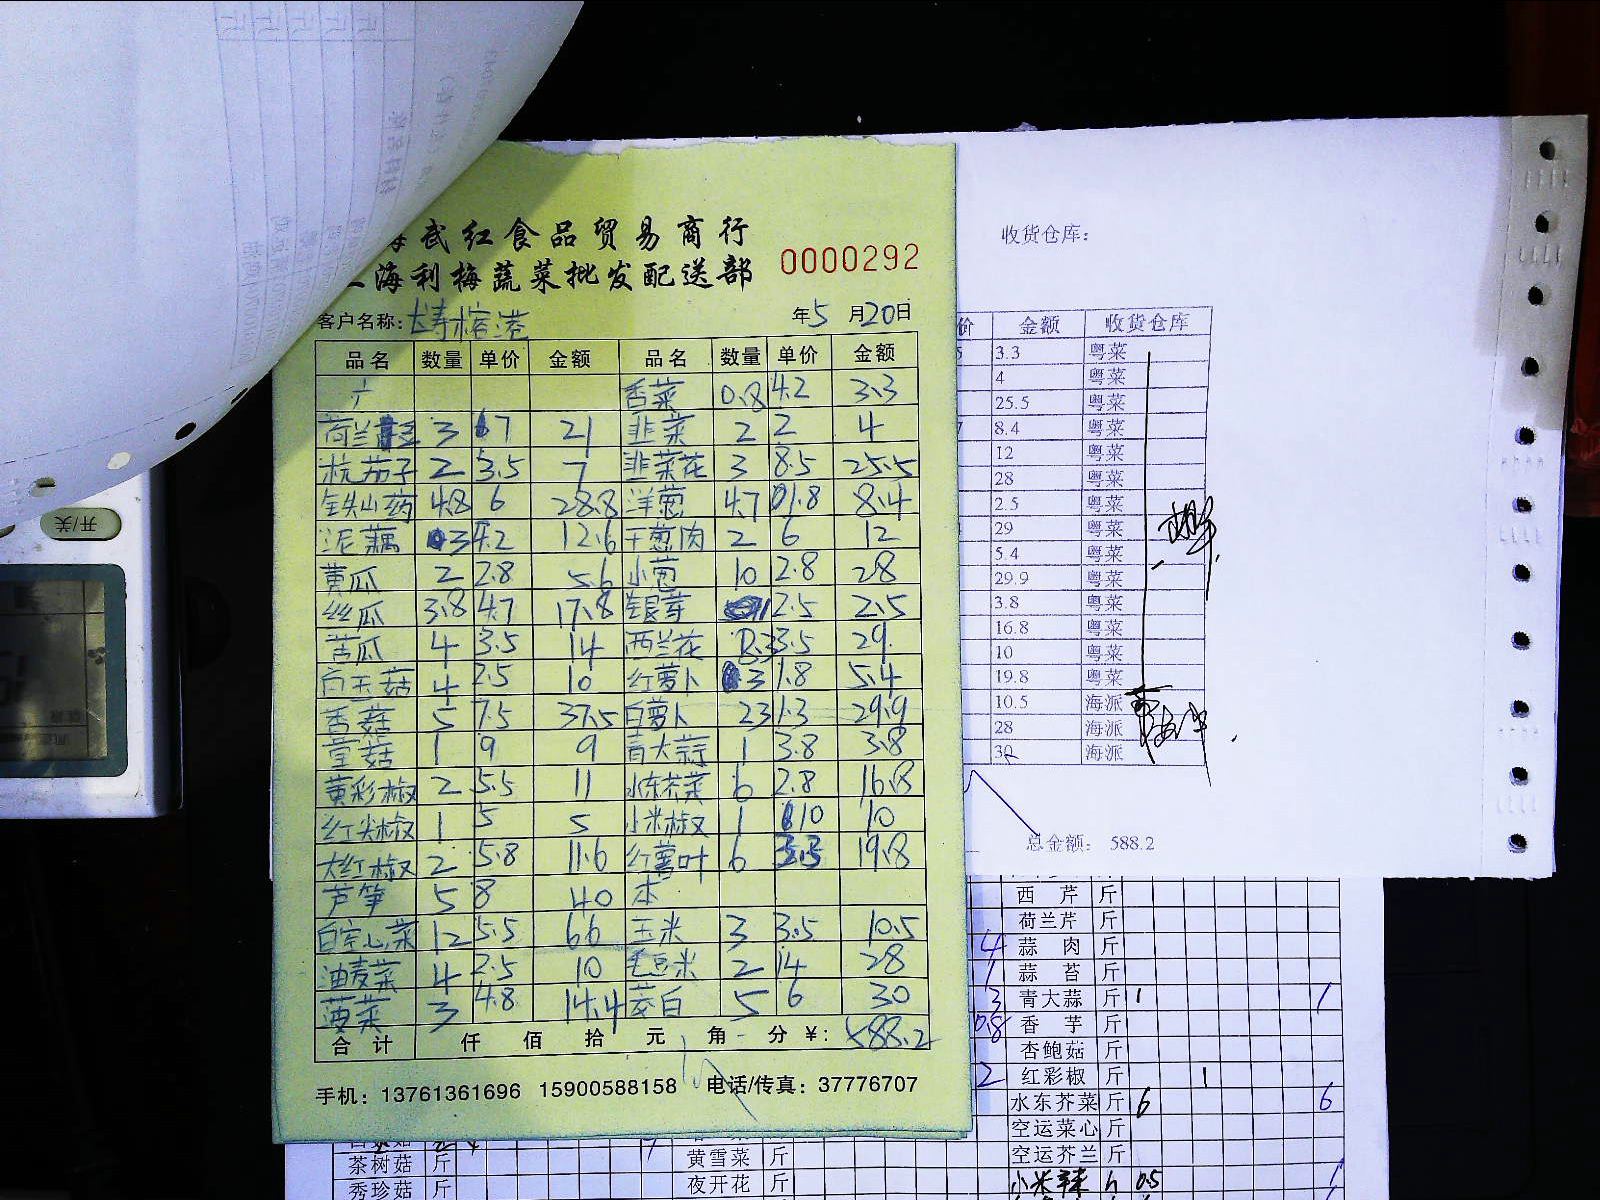 海武红食品贸易商行
上海利梅蔬菜批发配送部
0000292
客户名称: 长寿榕港 年5月20日
品名 数量 单价 金额 品名 数量 单价 金额
广 香菜 0.8 4.2 3.3
荷兰豆 3 7 21 韭菜 2 2 4
杭茄子 2 3.5 7 韭菜花 3 8.5 25.5
铁山药 4.8 6 28.8 洋葱 4.7 1.8 8.4
泥藕 3 4.2 12.6 干葱肉 2 6 12
黄瓜 2 2.8 5.6 小葱 10 2.8 28
丝瓜 3.8 4.7 17.8 银芽 1 2.5 2.5
苦瓜 4 3.5 14 西兰花 8.3 3.5 29
白玉菇 4 2.5 10 红萝卜 3 1.8 5.4
香菇 5 7.5 37.5 白萝卜 23 1.3 29.9
草菇 1 9 9 青大蒜 1 3.8 3.8
黄彩椒 2 5.5 11 水东芥菜 6 2.8 16.8
红尖椒 1 5 5 小米椒 1 10 10
大红椒 2 5.8 11.6 红薯叶 6 3.3 19.8
芦笋 5 8 40 本
白空心菜 12 5.5 66 玉米 3 3.5 10.5
油麦菜 4 2.5 10 毛豆米 2 14 28
菠菜 3 4.8 14.4 茭白 5 6 30
合计 仟 佰 拾 元 角 分 ¥: 588.2
手机: 13761361696 15900588158 电话/传真: 37776707
收货仓库:
价 金额 收货仓库
5 3.3 粤菜
4 粤菜
25.5 粤菜
7 8.4 粤菜
12 粤菜
28 粤菜
2.5 粤菜
29 粤菜
5.4 粤菜
29.9 粤菜
3.8 粤菜
16.8 粤菜
10 粤菜
19.8 粤菜
10.5 海派
28 海派
30 海派
总金额: 588.2
开/关
西芹 斤
荷兰芹 斤
4 蒜肉 斤
1 蒜苔 斤
3 青大蒜 斤 1 1
0.8 香芋 斤
杏鲍菇 斤
2 红彩椒 斤 1
水东芥菜 斤 6 6
空运菜心 斤
茶树菇 斤 黄雪菜 斤 空运芥兰 斤
秀珍菇 斤 夜开花 斤 小米辣 斤 0.5 1